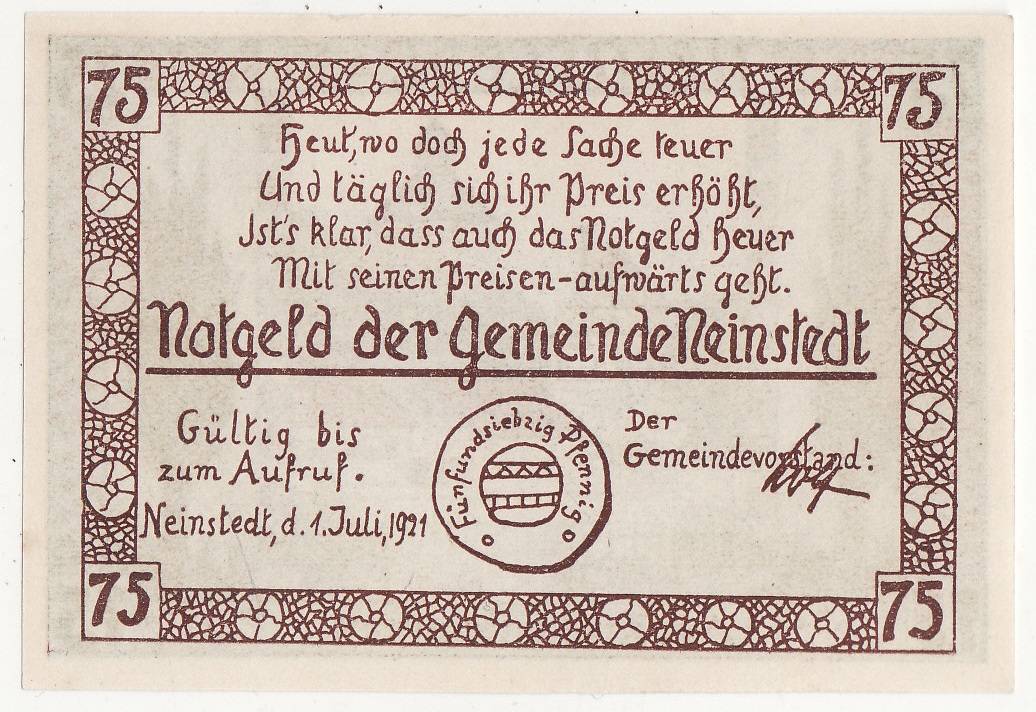 75 75
Heut, wo doch jede Sache teuer
Und täglich sich ihr Preis erhöht,
Ist's klar, dass auch das Notgeld heuer
Mit seinen Preisen-aufwärts geht.
Notgeld der Gemeinde Neinstedt
Gültig bis
zum Aufruf.
Neinstedt, d. 1. Juli, 1921
Fünfundsiebzig Pfennig
Der
Gemeindevorstand:
75 75